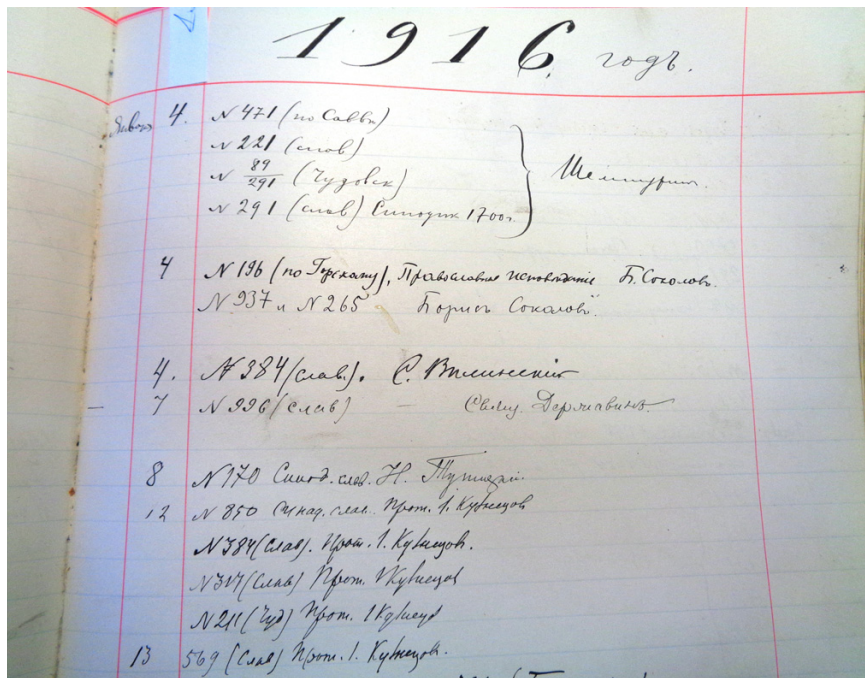 1916 годъ.
Январь 4. N 471 (по Саввѣ)
N 221 (слав)
N 89/291 (Чудовск)
N 291 (слав) Синодик 1700г. Шемшурин.
4 N 196 (по Горскому), Православное исповѣданіе Б. Соколовъ.
N 937 и N 265 Борисъ Соколовъ.
4. N 384 (слав.). С.
7 N 996 (слав) — Свящ. Державинъ.
8 N 170 Синод. слав. Н. Туницкій.
12 N 850 Синод. слав. Прот. І. Кузнецов
N 384 (слав). Прот. І. Кузнецов.
N 317 (слав) Прот. І Кузнецов
N 211 (Чуд) Прот. І Кузнецов
13 569 (слав) Прот. І. Кузнецов.